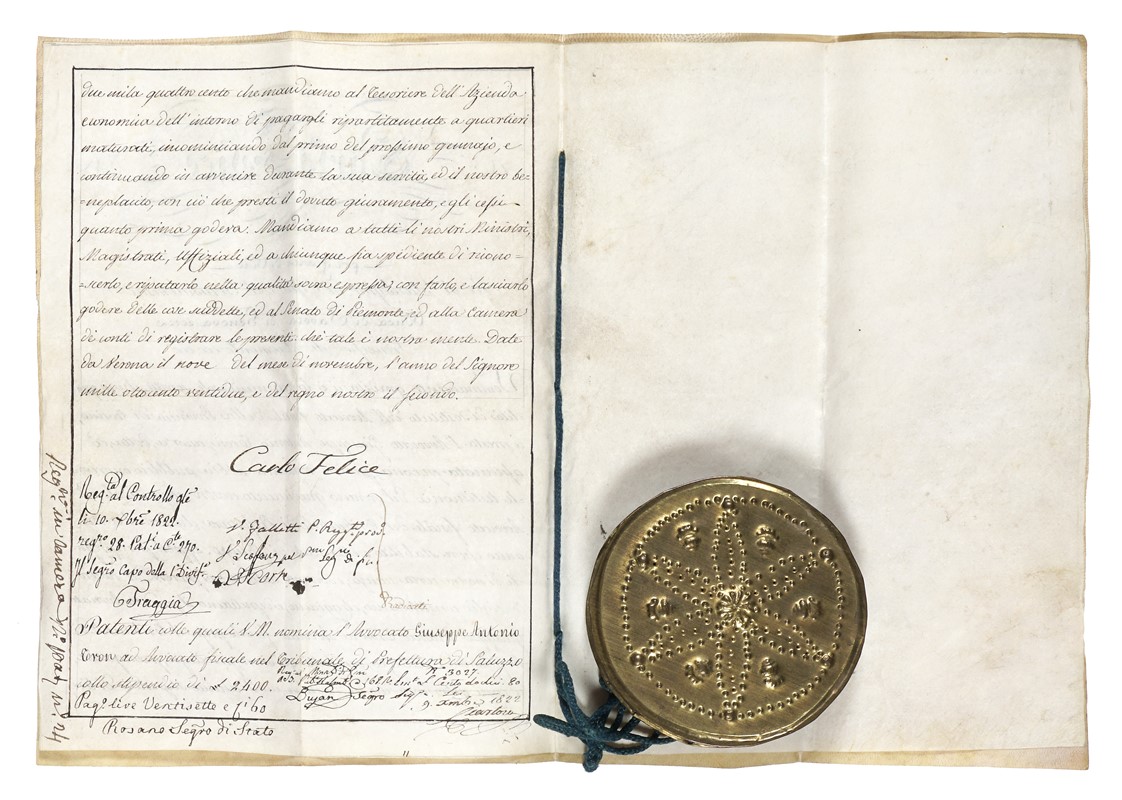 due mila quattro cento che mandiamo al Tesoriere dell'Azienda
economica dell'interno di pagargli ripartitamente a quartieri
maturati, incominciando dal primo del prossimo gennajo, e
continuando in avvenire durante la sua servitù, ed il nostro be=
=neplacito, con ciò che presti il dovuto giuramento, e gli cessi
quanto prima godeva. Mandiamo a tutti li nostri Ministri,
Magistrati, Uffiziali, ed a chiunque fia spediente di ricono=
=scerlo, e riputarlo nella qualità sovra espressa, con farlo, e lasciarlo
godere delle cose suddette, ed al Senato di Piemonte, ed alla Camera
di conti di registrare le presenti che tale è nostra mente. Date
da Verona il nove del mese di novembre, l'anno del Signore
mille ottocento ventidue, e del regno nostro il secondo.
Carlo Felice
Reg.ta al Controllo gle
li 10. 1822.
reg.ro 28. Pat.i a C.te 270.
Il Segro Capo della 1.a Divis.e
Traggia
V. Falletti P. Regg.te
V.
D. Corte
Patenti colle quali V.M. nomina l'Avvocato Giuseppe Antonio
Coron ad Avvocato fiscale nel Tribunale di Prefettura di Saluzzo
collo stipendio di £ 2400.
Pag.o live Ventisette e 60
Bujan Segro
1822
Rosano Segro di Stato
Reg. in Camera pat. n. 24
11